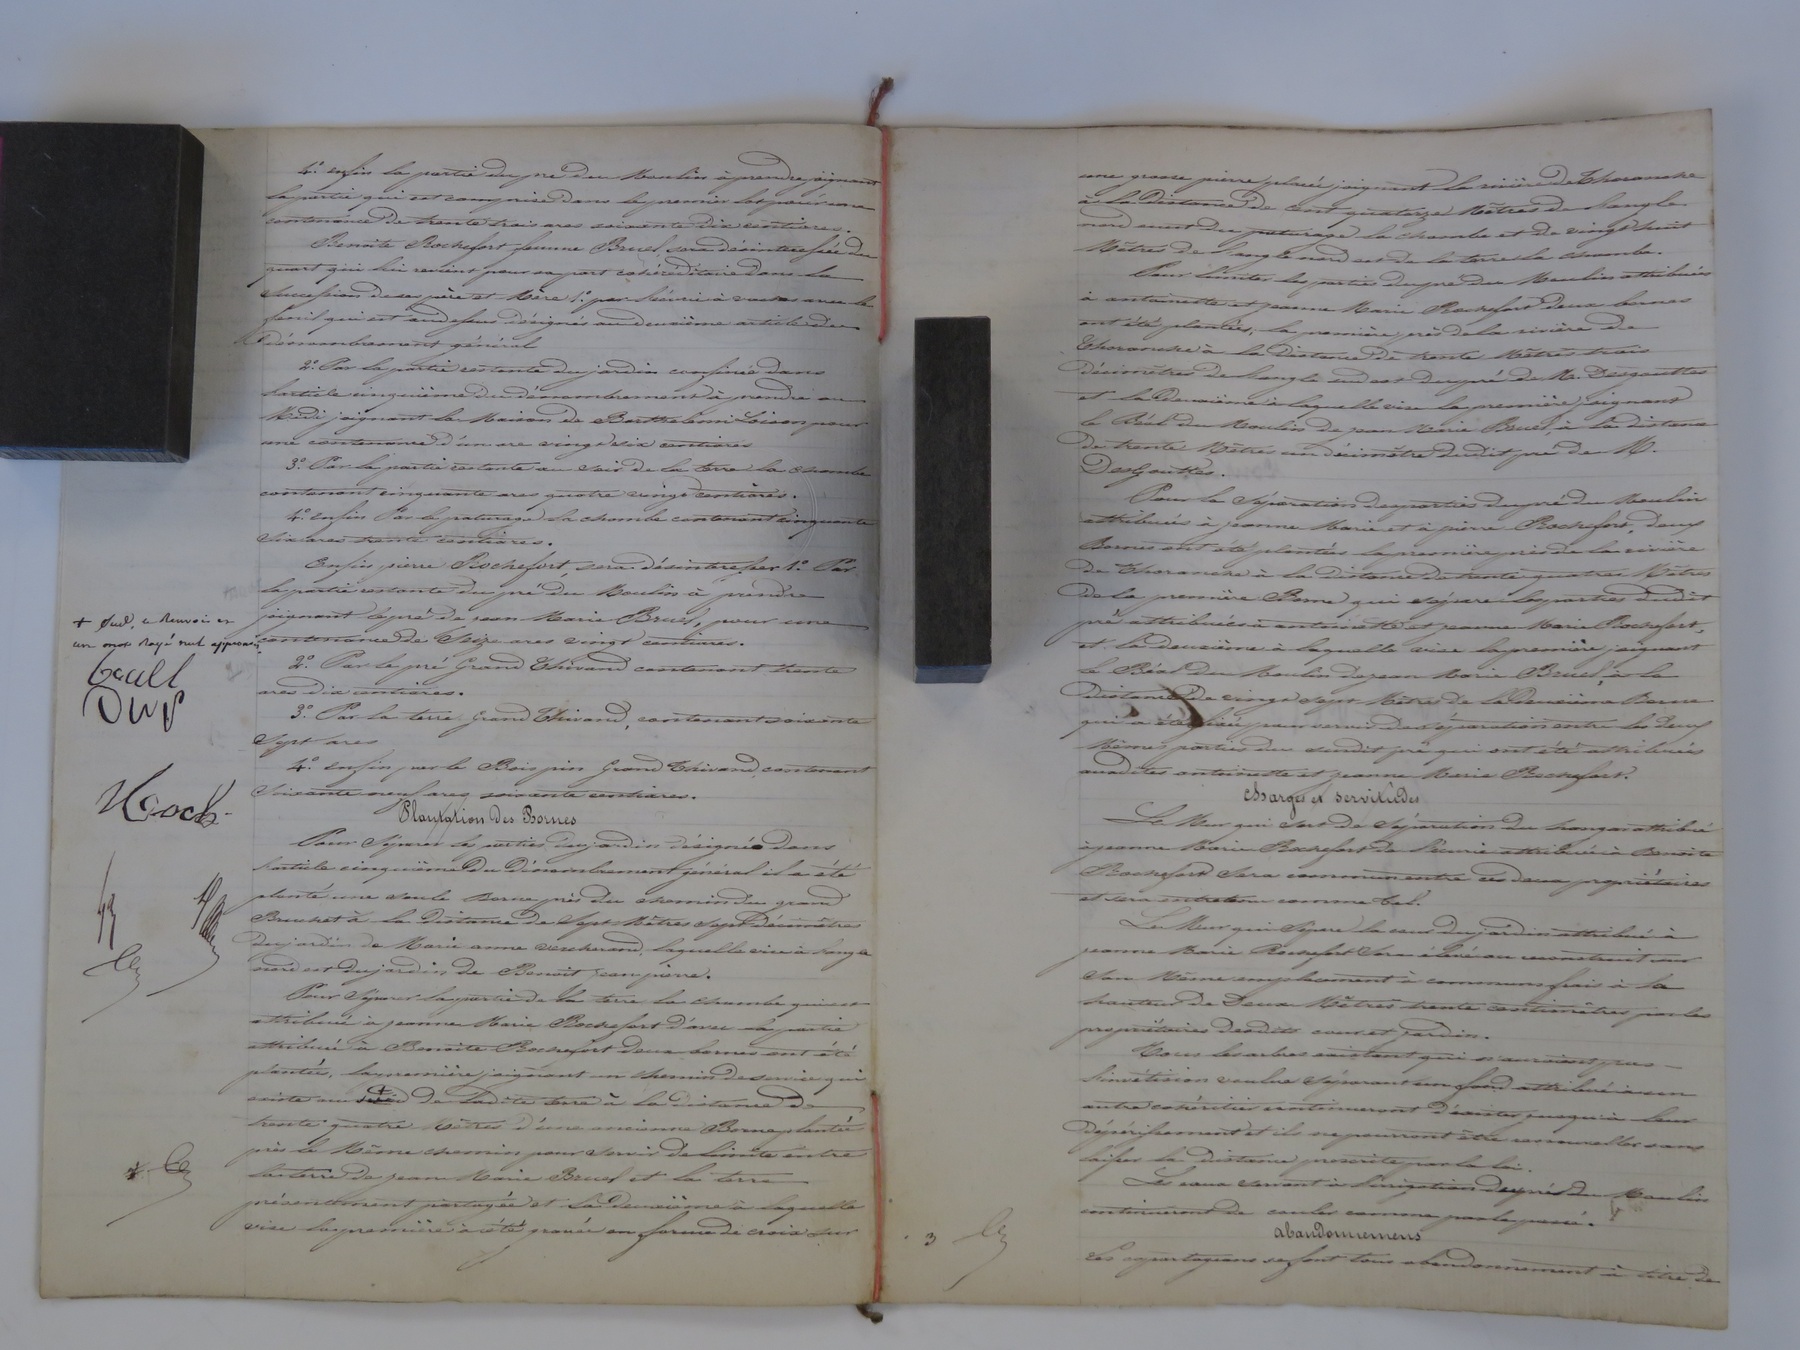 4.° enfin la partie du pré du Moulin à prendre joignant
la partie qui est comprise dans le premier lot pour une
contenance de trente trois ares soixante dix centiares.
Benoite Rochefort femme Bruel, sera désintéressée du
quart qui lui revient pour sa part cohéréditaire dans la
succession de ses père et Mère 1.° par l'écurie à vaches avec le
fenil qui est au dessus désignés au deuxième article du
dénombrement général
2.° Par la partie restante du jardin confinée dans
l'article cinquième du dénombrement à prendre au
Midi joignant la Maison de Barthelemi Loison pour
une contenance d'un are vingt six centiares
3.° Par la partie restante au soir de la terre la chombe
contenant cinquante ares quatre vingt centiares.
4.° enfin Par le paturage la chombe contenant cinquante
six ares trente centiares.
Enfin pierre Rochefort, sera désintéressé 1.° Par
la partie restante du pré du Moulin à prendre
joignant le pré de jean Marie Bruel, pour une
contenance de Seize ares vingt centiares.
2.° Par le pré Grand Thivand contenant trente
ares dix centiares.
3.° Par la terre Grand Thivand, contenant soixante
sept ares
4.° enfin par le Bois pin Grand Thivand contenant
soixante neuf ares soixante centiares.
Plantation Des Bornes
Pour Séparer les parties du jardin désigné dans
l'article cinquième du Dénombrement général il a été
planté une seule Borne près du chemin du grand
à la Distance de Sept Mètres sept décimètres
du jardin de Marie anne laquelle vise à l'angle
nord est du jardin de Benoit jean pierre.
Pour Séparer la partie de la terre la chombe qui est
attribuée à jeanne Marie Rochefort d'avec la partie
attribuée à Benoite Rochefort deux bornes ont été
plantées, la première joignant un chemin de service qui
existe au de ladite terre à la distance de
trente quatre Mètres d'une ancienne Borne plantée
près le Même chemin pour servir de limite entre
la terre de jean Marie Bruel et la terre
présentement partagée et la deuxième à laquelle
vise la première a été gravée en forme de croix sur
+ Sud, ce Renvoi et
un mot Rayé nul approuvés
Roch
une grosse pierre placée joignant la rivière de Thoranche
à la Distance de cent quatorze Mètres de l'angle
nord ouest du paturage la chombe et de vingt huit
Mètres de l'angle nord est de la terre la chombe.
Pour limiter les parties du pré du Moulin attribuées
à antoinette et jeanne Marie Rochefort deux bornes
ont été plantées, la première près de la rivière de
Thoranche à la Distance de trente Mètres trois
décimètres de l'angle sud est du pré de M. Desgouttes
et la Deuxième à laquelle vise la première joignant
le Béal du Moulin de jean Marie Bruel, à la distance
de trente Mètres un décimètre dudit pré de M.
DesGouttes.
Pour la Séparation des parties du pré du Moulin
attribuées à jeanne Marie et à pierre Rochefort, deux
Bornes ont été plantées la première près de la rivière
de Thoranche à la distance de trente quatre Mètres
De la première Borne qui sépare les parties dudit
pré attribuées à antoinette et jeanne Marie Rochefort,
et la deuxième à laquelle vise la première joignant
le Béal du Moulin de jean Marie Bruel, à la
distance de vingt sept Mètres de la Deuxième Borne
qui a été placée pour servir de séparation entre les deux
Mêmes parties du susdit pré qui ont été attribuées
auxdites antoinette et jeanne Marie Rochefort.
charges et servitudes
Le Mur qui sert de Séparation du hangar attribué
à jeanne Marie Rochefort de l'écurie attribuée à Benoite
Rochefort Sera commun entre ces deux propriétaires
et sera entretenu comme tel.
Le Mur qui Sépare la cour du jardin attribué à
jeanne Marie Rochefort sera élevé ou reconstruit sur
son Même emplacement à communs frais à la
hauteur de Deux Mètres trente centimètres par les
propriétaires desdits cour et jardin.
Tous les arbres existant qui n'auraient pas
voulue séparant un fond attribué à un
autre cohéritier continueront d'exister jusqu'à leur
dépérissement et ils ne pourront être renouvellés sans
laisser la distance prescrite par la loi.
Les eaux servant à l'irrigation du pré du Moulin
continueront de couler comme par le passé.
abandonnemens
Les copartageans se font tous abandonnement à titre de
3